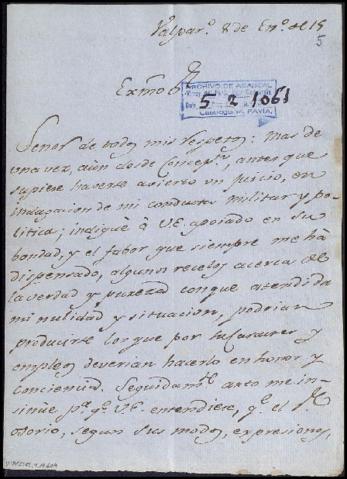 Valpar.º 8 de En.º de 15
5
Exmo Sr
ARCHIVO DE ABASCAL
5 2 1061
PAVIA
Señor de todos mis respetos: Mas de
una vez, aun desde Concep.n antes que
supiese haverse avierto un juicio, en
indagacion de mi conducta militar y po-
litica; indiqué á VE apoyado en su
bondad, y el fabor que siempre me há
dispensado, algunos recelos acerca de
la verdad y pureza conque atendida
mi nulidad y situacion, podrian
producirse los que por sus caracteres y
empleos deverian hacerlo en honor y
conciencia. Seguidam.te antes me in-
sinué p.a q.e VE entendiese, q.e el Sr
Osorio, segun sus modos, expresiones,